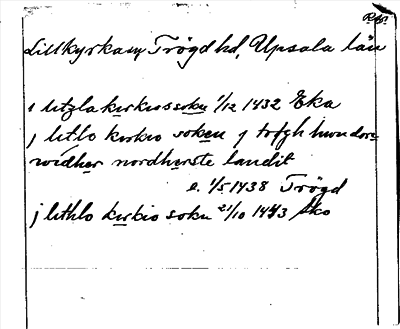 Rtg.
Lillkyrka sn Trögd hd, Upsala län
i litzla kirkiossoku 1/12 1432 Eka
j litlo kirkio soken j trøgh hundare
widher nordherste landit
e. 1/5 1438 Trögd
j lithlo kirkio soku 21/10 1443 Sko